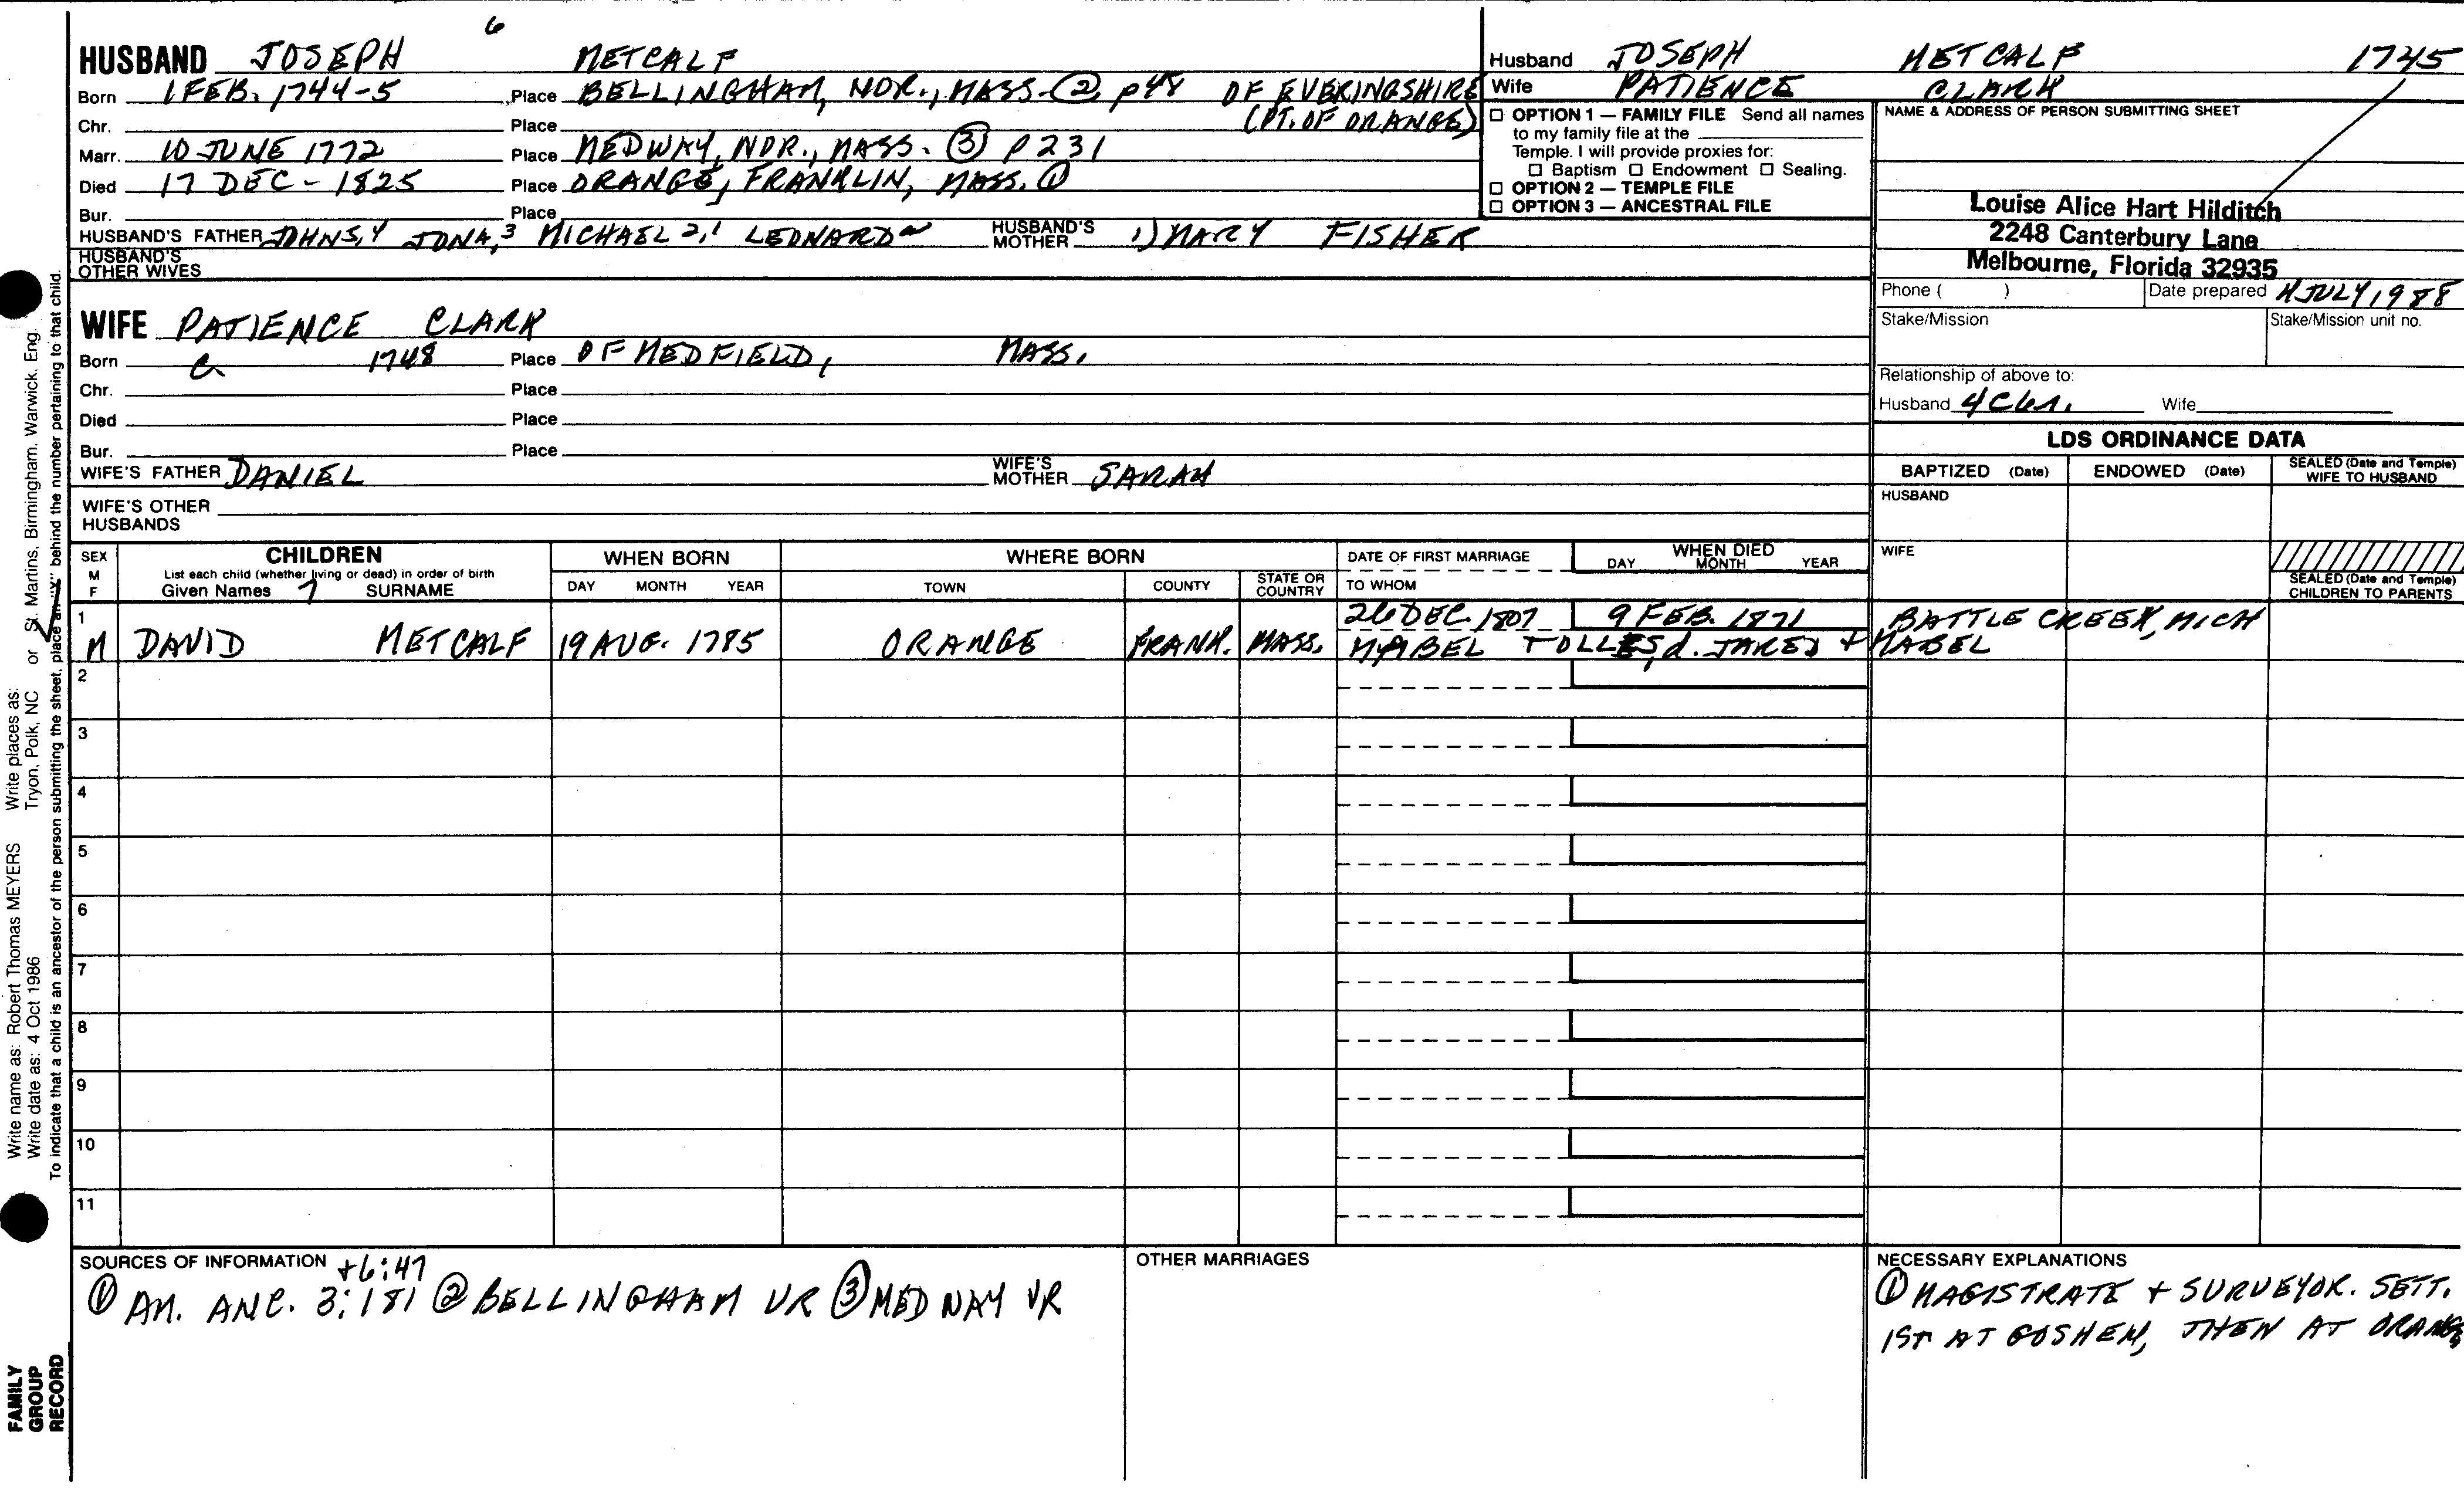 6
HUSBAND JOSEPH METCALF
Born 1 FEB. 1744-5 Place BELLINGHAM, NOR., MASS. ② p48 OF EVERINGSHIRE
Chr. Place (PT. OF ORANGE)
Marr. 10 JUNE 1772 Place MEDWAY, NOR., MASS. ③ P 231
Died 17 DEC - 1825 Place ORANGE, FRANKLIN, MASS. ①
Bur. Place
HUSBAND'S FATHER JOHN 5,4 JONA, 3 MICHAEL 2,1 LEONARD HUSBAND'S MOTHER 1) MARY FISHER
HUSBAND'S OTHER WIVES
Husband JOSEPH METCALF 1745
Wife PATIENCE CLARK
☐ OPTION 1 — FAMILY FILE Send all names
to my family file at the
Temple. I will provide proxies for:
☐ Baptism ☐ Endowment ☐ Sealing.
☐ OPTION 2 — TEMPLE FILE
☐ OPTION 3 — ANCESTRAL FILE
NAME & ADDRESS OF PERSON SUBMITTING SHEET
Louise Alice Hart Hilditch
2248 Canterbury Lane
Melbourne, Florida 32935
Phone ( ) Date prepared JULY 1988
Stake/Mission Stake/Mission unit no.
Relationship of above to:
Husband 4 Wife
WIFE PATIENCE CLARK
Born C 1748 Place OF MEDFIELD, MASS.
Chr. Place
Died Place
Bur. Place
WIFE'S FATHER DANIEL WIFE'S MOTHER SARAH
WIFE'S OTHER
HUSBANDS
LDS ORDINANCE DATA
BAPTIZED (Date) ENDOWED (Date) SEALED (Date and Temple)
WIFE TO HUSBAND
HUSBAND
WIFE
SEALED (Date and Temple)
CHILDREN TO PARENTS
SEX
M
F
CHILDREN
List each child (whether living or dead) in order of birth
Given Names 7 SURNAME
WHEN BORN
DAY MONTH YEAR
WHERE BORN
TOWN COUNTY STATE OR COUNTRY
DATE OF FIRST MARRIAGE
TO WHOM
WHEN DIED
DAY MONTH YEAR
1 26 DEC. 1807 9 FEB. 1871 BATTLE CREEK, MICH
M DAVID METCALF 19 AUG. 1785 ORANGE FRANK. MASS. MABEL TOLLES, d. JARED + MABEL
2
3
4
5
6
7
8
9
10
11
SOURCES OF INFORMATION +6:47
① AM. ANC. 3:181 ② BELLINGHAM VR ③ MEDWAY VR
OTHER MARRIAGES
NECESSARY EXPLANATIONS
① MAGISTRATE + SURVEYOR. SETT.
1ST AT GOSHEN, THEN AT ORANGE
Write name as: Robert Thomas MEYERS Write places as:
Write date as: 4 Oct 1986 Tryon, Polk, NC or St. Martins, Birmingham, Warwick, Eng.
To indicate that a child is an ancestor of the person submitting the sheet, place an "X" behind the number pertaining to that child.
FAMILY
GROUP
RECORD